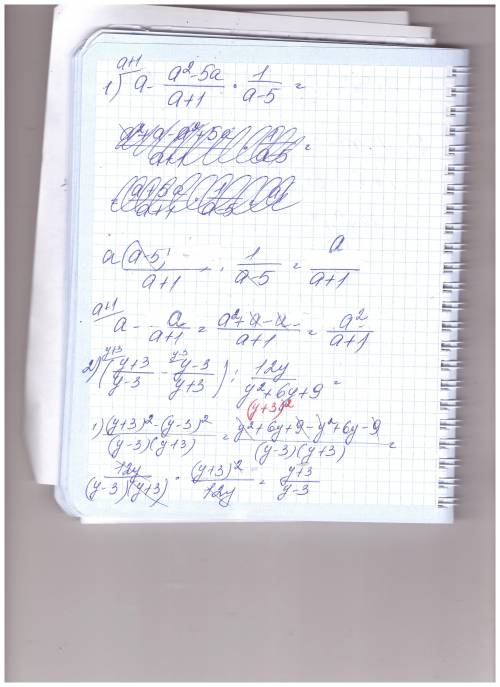 a+1
1) a - (a²-5a)/(a+1) · 1/(a-5) =
a(a-5)/(a+1) · 1/(a-5) = a/(a+1)
a+1
a - a/(a+1) = (a²+a-a)/(a+1) = a²/(a+1)
y+3 y-3
2) ((y+3)/(y-3) - (y-3)/(y+3)) : 12y/(y²+6y+9) =
(y+3)²
1) ((y+3)²-(y-3)²)/((y-3)(y+3)) = (y²+6y+9-y²+6y-9)/((y-3)(y+3)) =
12y/((y-3)(y+3)) · (y+3)²/12y = (y+3)/(y-3)